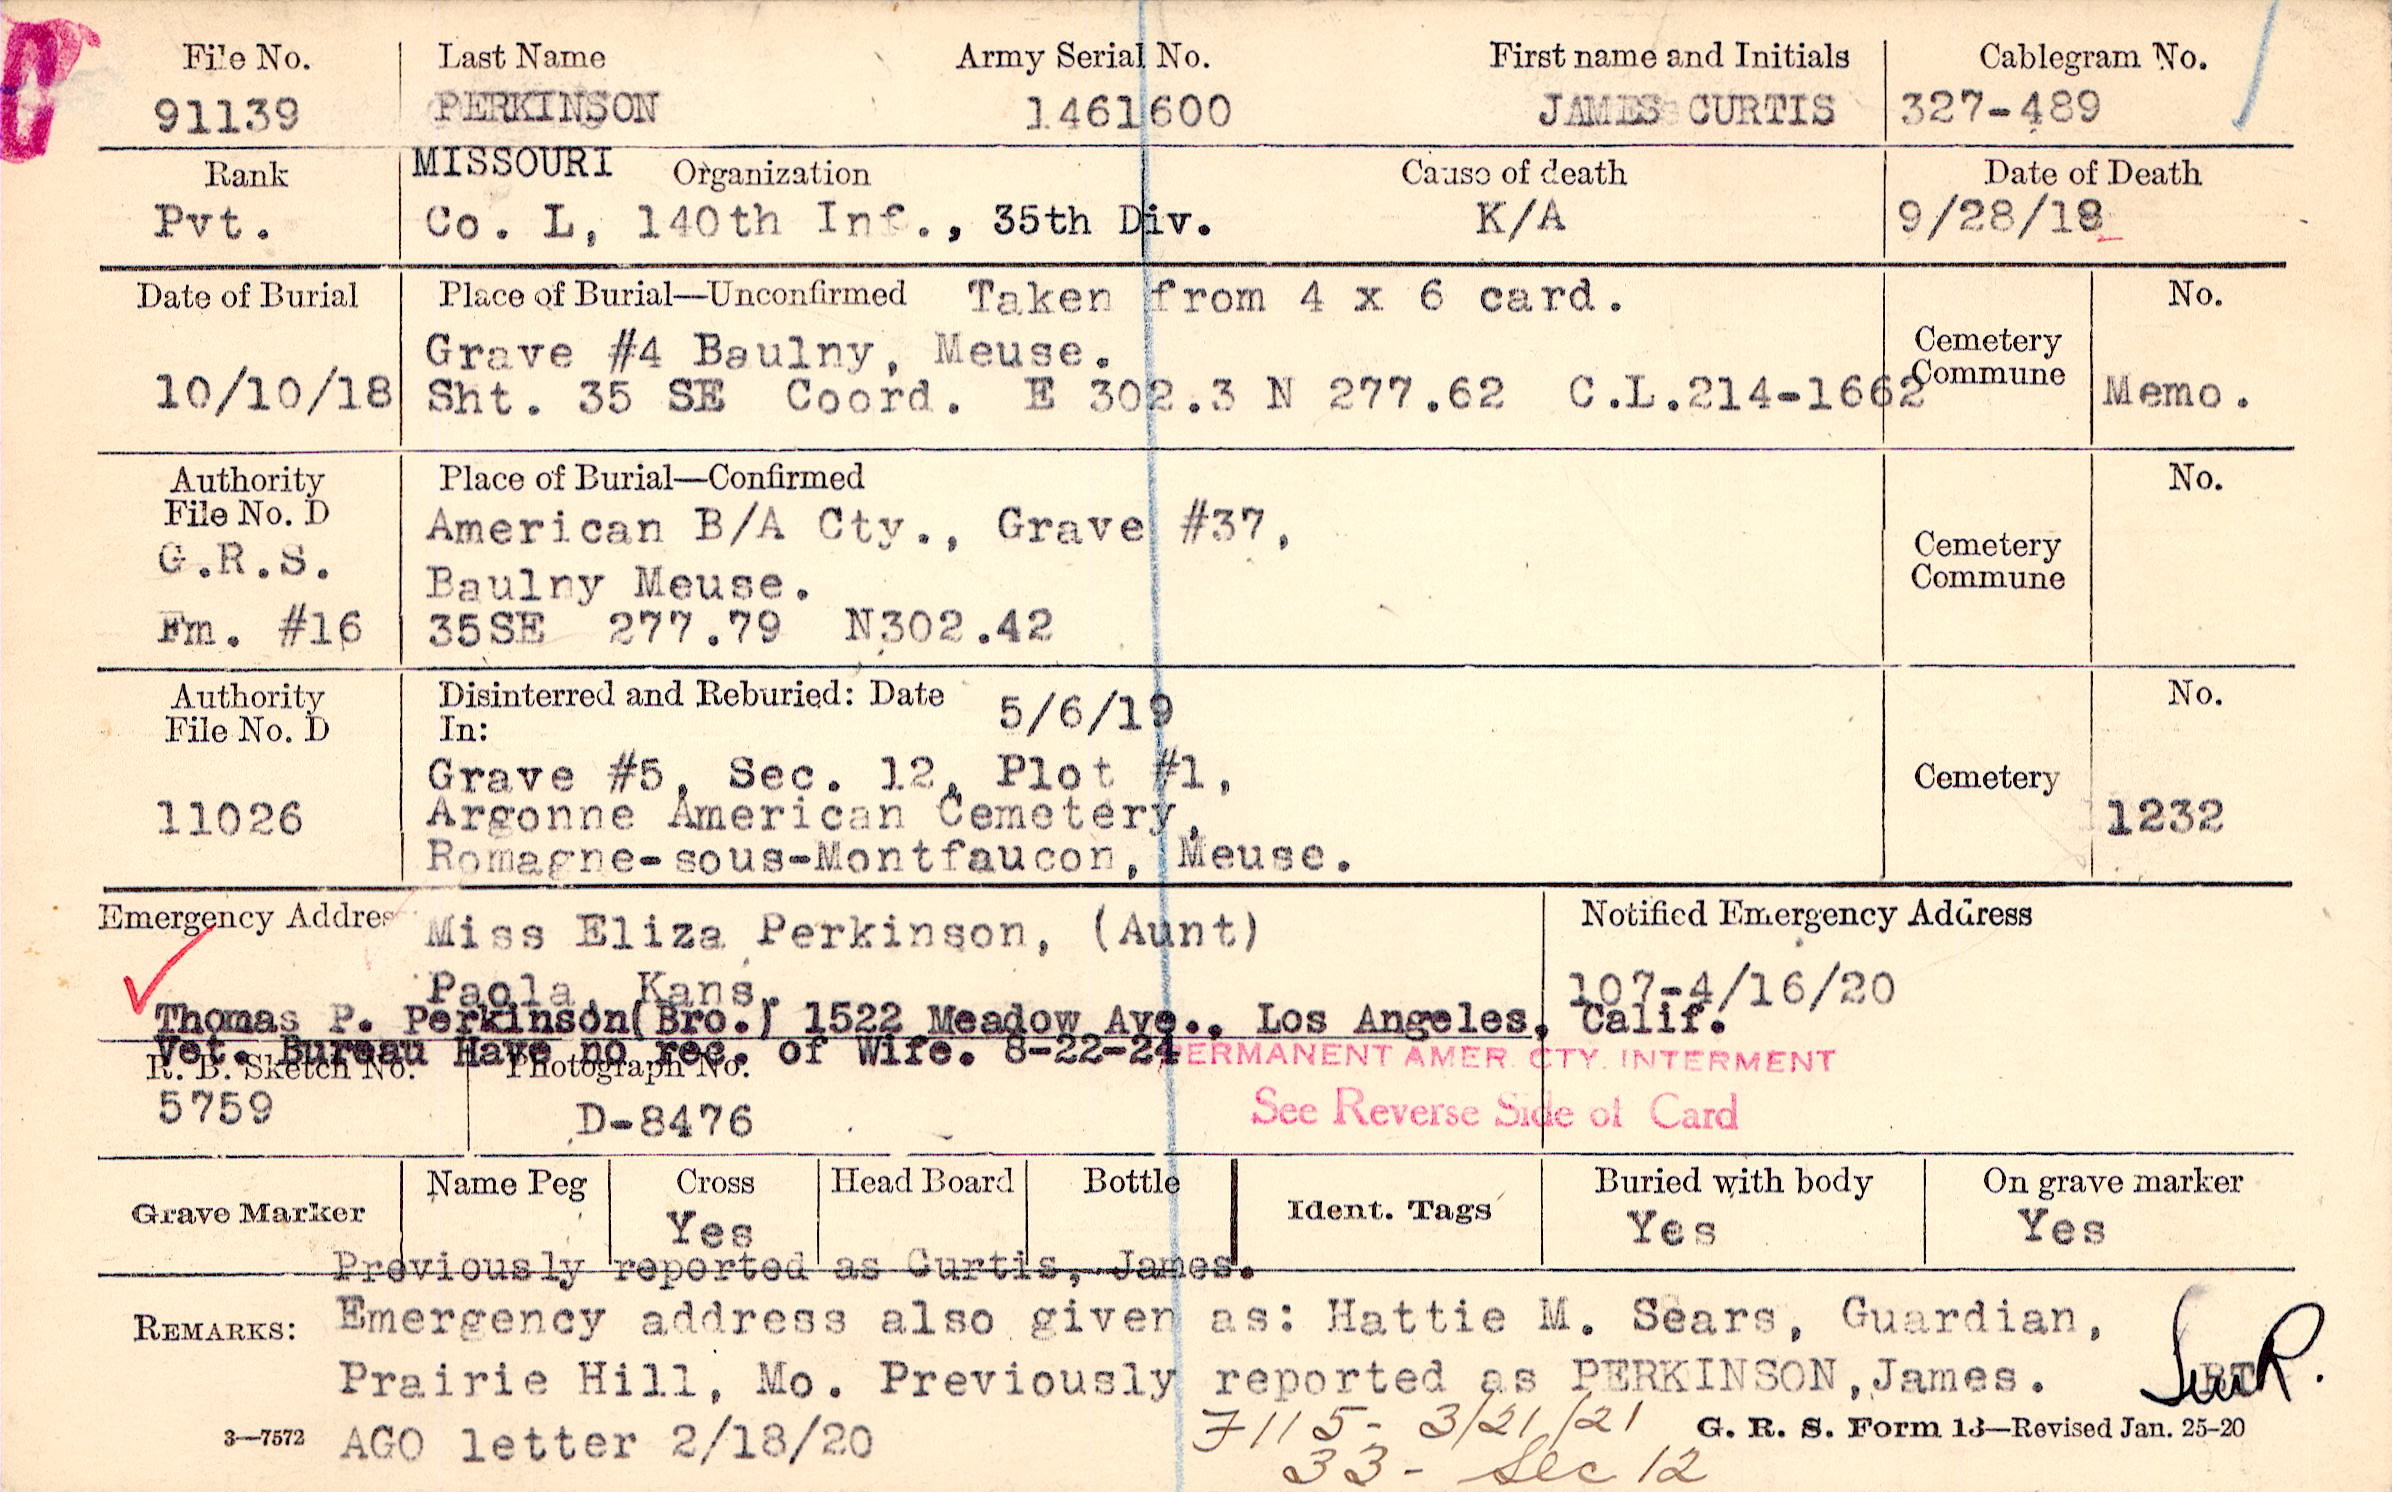 File No. Last Name Army Serial No. First name and Initials Cablegram No.
91139 PERKINSON 1461600 JAMES CURTIS 327-489
Rank MISSOURI Organization Cause of death Date of Death
Pvt. Co. L, 140th Inf., 35th Div. K/A 9/28/18
Date of Burial Place of Burial—Unconfirmed Taken from 4 x 6 card. No.
Grave #4 Baulny, Meuse. Cemetery
10/10/18 Sht. 35 SE Coord. E 302.3 N 277.62 C.L.214-1662 Commune Memo.
Authority Place of Burial—Confirmed No.
File No. D American B/A Cty., Grave #37,
G.R.S. Baulny Meuse. Cemetery Commune
Fm. #16 35SE 277.79 N302.42
Authority Disinterred and Reburied: Date 5/6/19 No.
File No. D In:
Grave #5, Sec. 12, Plot #1, Cemetery
11026 Argonne American Cemetery, 1232
Romagne-sous-Montfaucon, Meuse.
Emergency Addres Miss Eliza Perkinson, (Aunt) Notified Emergency Address
Paola, Kans. 107-4/16/20
Thomas P. Perkinson(Bro.) 1522 Meadow Ave., Los Angeles, Calif.
Vet. Bureau Have no rec. of Wife. 8-22-24 PERMANENT AMER. CTY. INTERMENT
R. B. Sketch No. Photograph No.
5759 D-8476 See Reverse Side of Card
Grave Marker Name Peg Cross Head Board Bottle Ident. Tags Buried with body On grave marker
Yes Yes Yes
Previously reported as Curtis, James.
REMARKS: Emergency address also given as: Hattie M. Sears, Guardian,
Prairie Hill, Mo. Previously reported as PERKINSON,James.
3—7572 AGO letter 2/18/20 7115- 3/21/21 G. R. S. Form 13—Revised Jan. 25-20
33- Sec 12